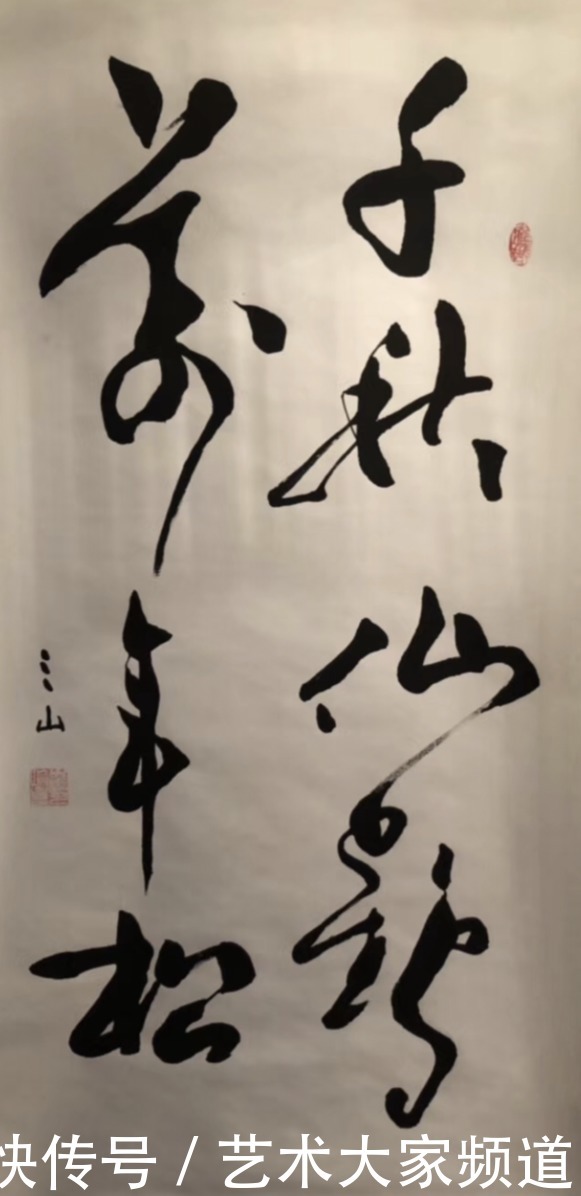 千秋仙鶴
萬年松
三山
快传号 / 艺术大家频道